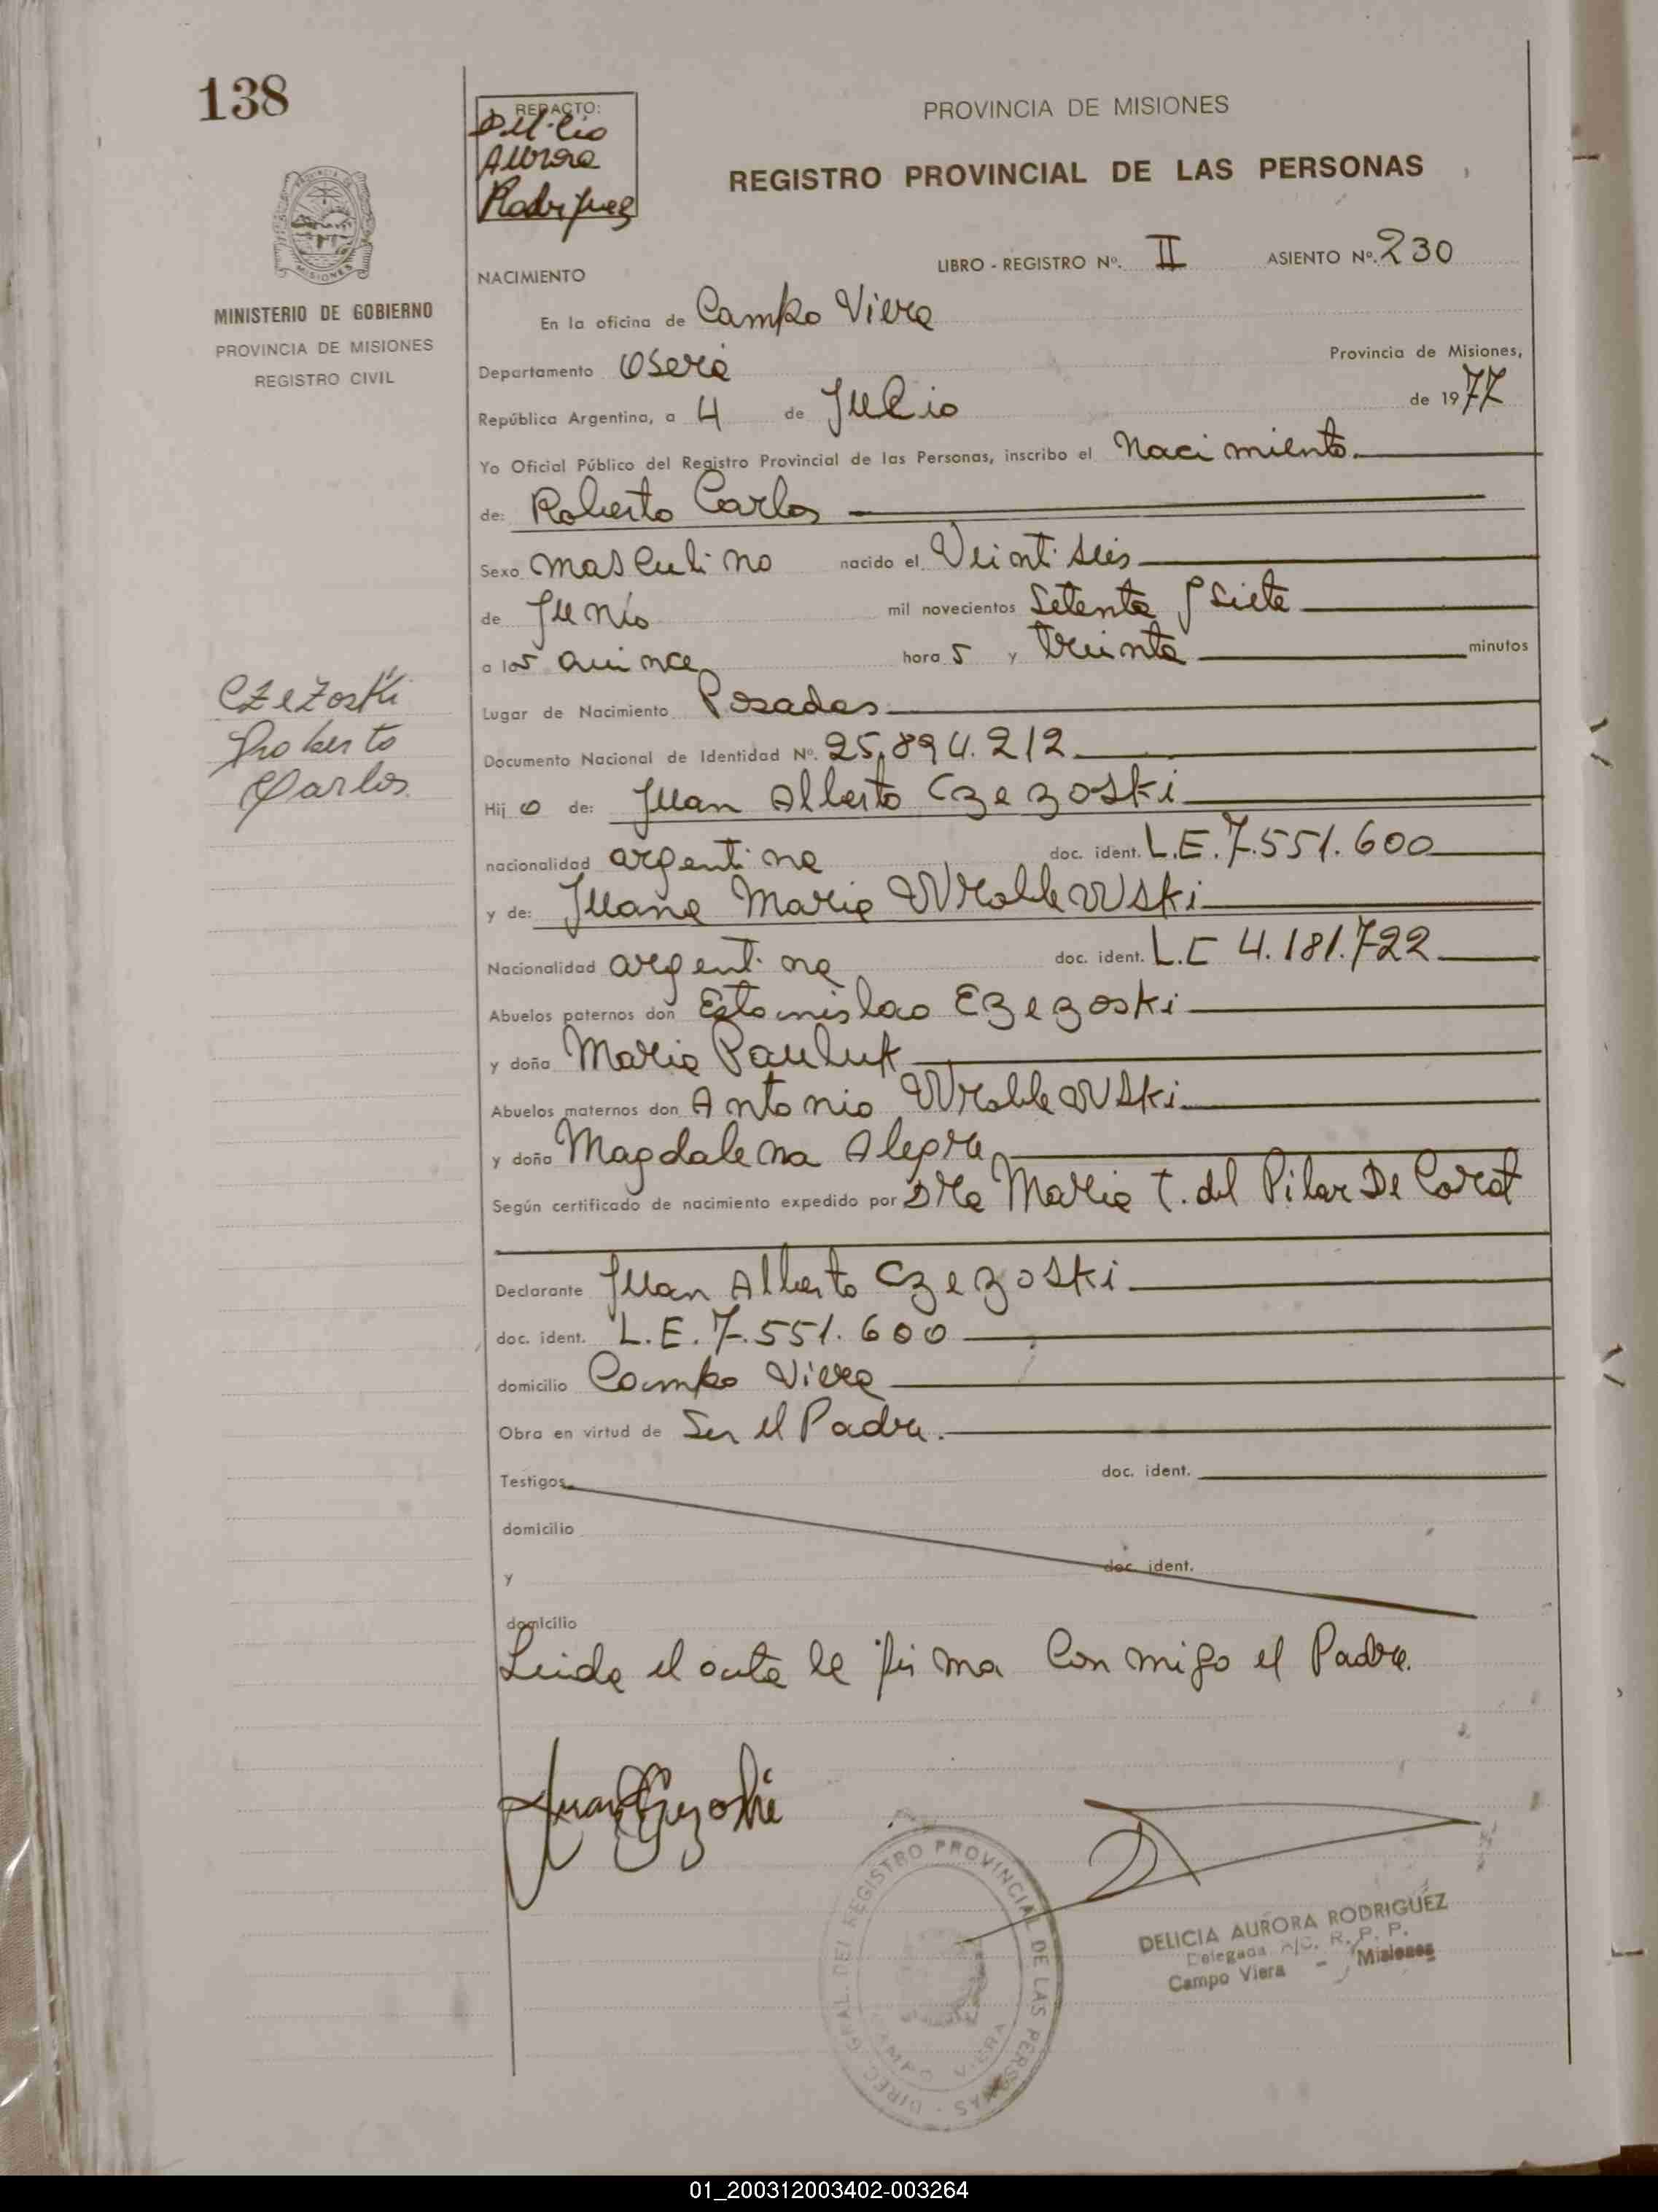 138
REDACTO:
Aurora
Rodriguez
PROVINCIA DE MISIONES
REGISTRO PROVINCIAL DE LAS PERSONAS
LIBRO - REGISTRO Nº. II ASIENTO Nº. 230
NACIMIENTO
MINISTERIO DE GOBIERNO
PROVINCIA DE MISIONES
REGISTRO CIVIL
En la oficina de Campo Viera
Departamento Oberá Provincia de Misiones,
República Argentina, a 4 de Julio de 1977
Yo Oficial Público del Registro Provincial de las Personas, inscribo el Nacimiento.
de: Roberto Carlos
Sexo masculino nacido el Veintiseis
de Junio mil novecientos Setenta y Siete
a las quince hora s y treinta minutos
Czezoski
Roberto
Carlos
Lugar de Nacimiento Posadas
Documento Nacional de Identidad Nº. 25.894.212
Hij o de: Juan Alberto Czezoski
nacionalidad argentina doc. ident. L.E. 7.551.600
y de: Juana Maria Wroblewski
Nacionalidad argentina doc. ident. L.C 4.181.722
Abuelos paternos don Estanislao Czezoski
y doña Maria Pauluk
Abuelos maternos don Antonio Wroblewski
y doña Magdalena Alegre
Según certificado de nacimiento expedido por Dra Maria T. del Pilar De Corat
Declarante Juan Alberto Czezoski
doc. ident. L.E. 7.551.600
domicilio Campo Viera
Obra en virtud de Ser el Padre.
Testigos doc. ident.
domicilio
y doc. ident.
domicilio
Leida el acta la firma Conmigo el Padre.
DIREC. GRAL. DEL REGISTRO PROVINCIAL DE LAS PERSONAS
CAMPO VIERA
DELICIA AURORA RODRIGUEZ
Delegada A/C. R. P. P.
Campo Viera - Misiones
01_200312003402-003264